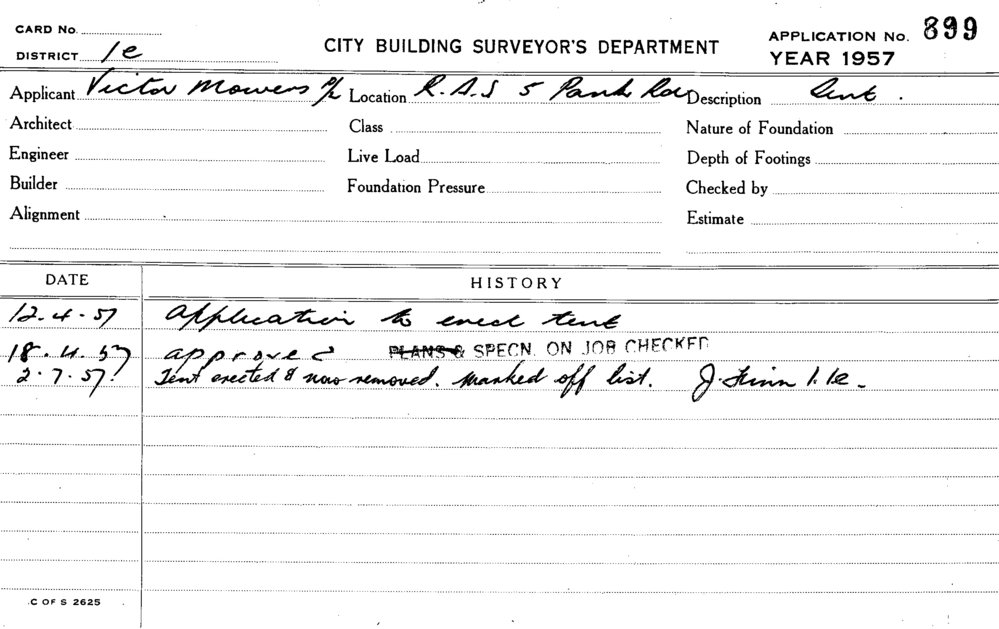 CARD No.
DISTRICT 1e
CITY BUILDING SURVEYOR'S DEPARTMENT
APPLICATION No. 899
YEAR 1957
Applicant Victor Mowers P/L Location R.A.S 5 Park Road Description Tent.
Architect Class Nature of Foundation
Engineer Live Load Depth of Footings
Builder Foundation Pressure Checked by
Alignment Estimate
DATE HISTORY
12.4.57 Application to erect tent
18.4.57 approved PLANS & SPECN. ON JOB CHECKED
2.7.57. Tent erected & now removed. Marked off list. J.
C OF S 2625